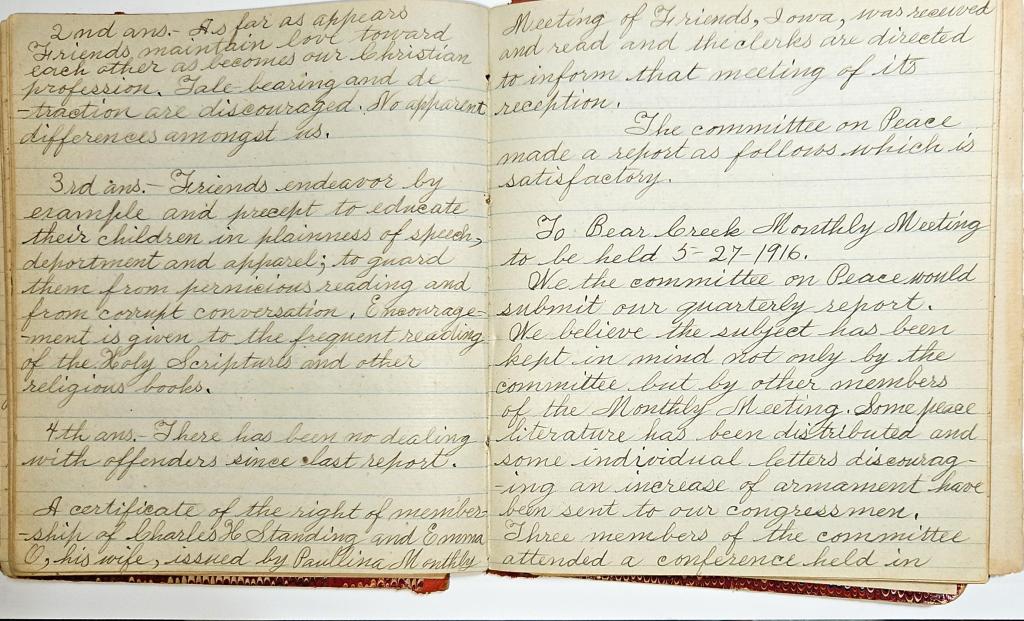 2nd ans.- As far as appears
Friends maintain love toward
each other as becomes our Christian
profession. Tale-bearing and de-
-traction are discouraged. No apparent
differences amongst us.
3rd ans.- Friends endeavor by
example and precept to educate
their children in plainness of speech,
deportment and apparel; to guard
them from pernicious reading and
from corrupt conversation. Encourage-
-ment is given to the frequent reading
of the Holy Scriptures and other
religious books.
4th ans.- There has been no dealing
with offenders since last report.
A certificate of the right of member-
-ship of Charles H Standing and Emma
O, his wife, issued by Paullina Monthly
Meeting of Friends, Iowa, was received
and read and the clerks are directed
to inform that meeting of its
reception.
The committee on Peace
made a report as follows which is
satisfactory.
To Bear Creek Monthly Meeting
to be held 5-27-1916.
We the committee on Peace would
submit our quarterly report.
We believe the subject has been
kept in mind not only by the
committee but by other members
of the Monthly Meeting. Some peace
literature has been distributed and
some individual letters discourag-
-ing an increase of armament have
been sent to our congressmen.
Three members of the committee
attended a conference held in